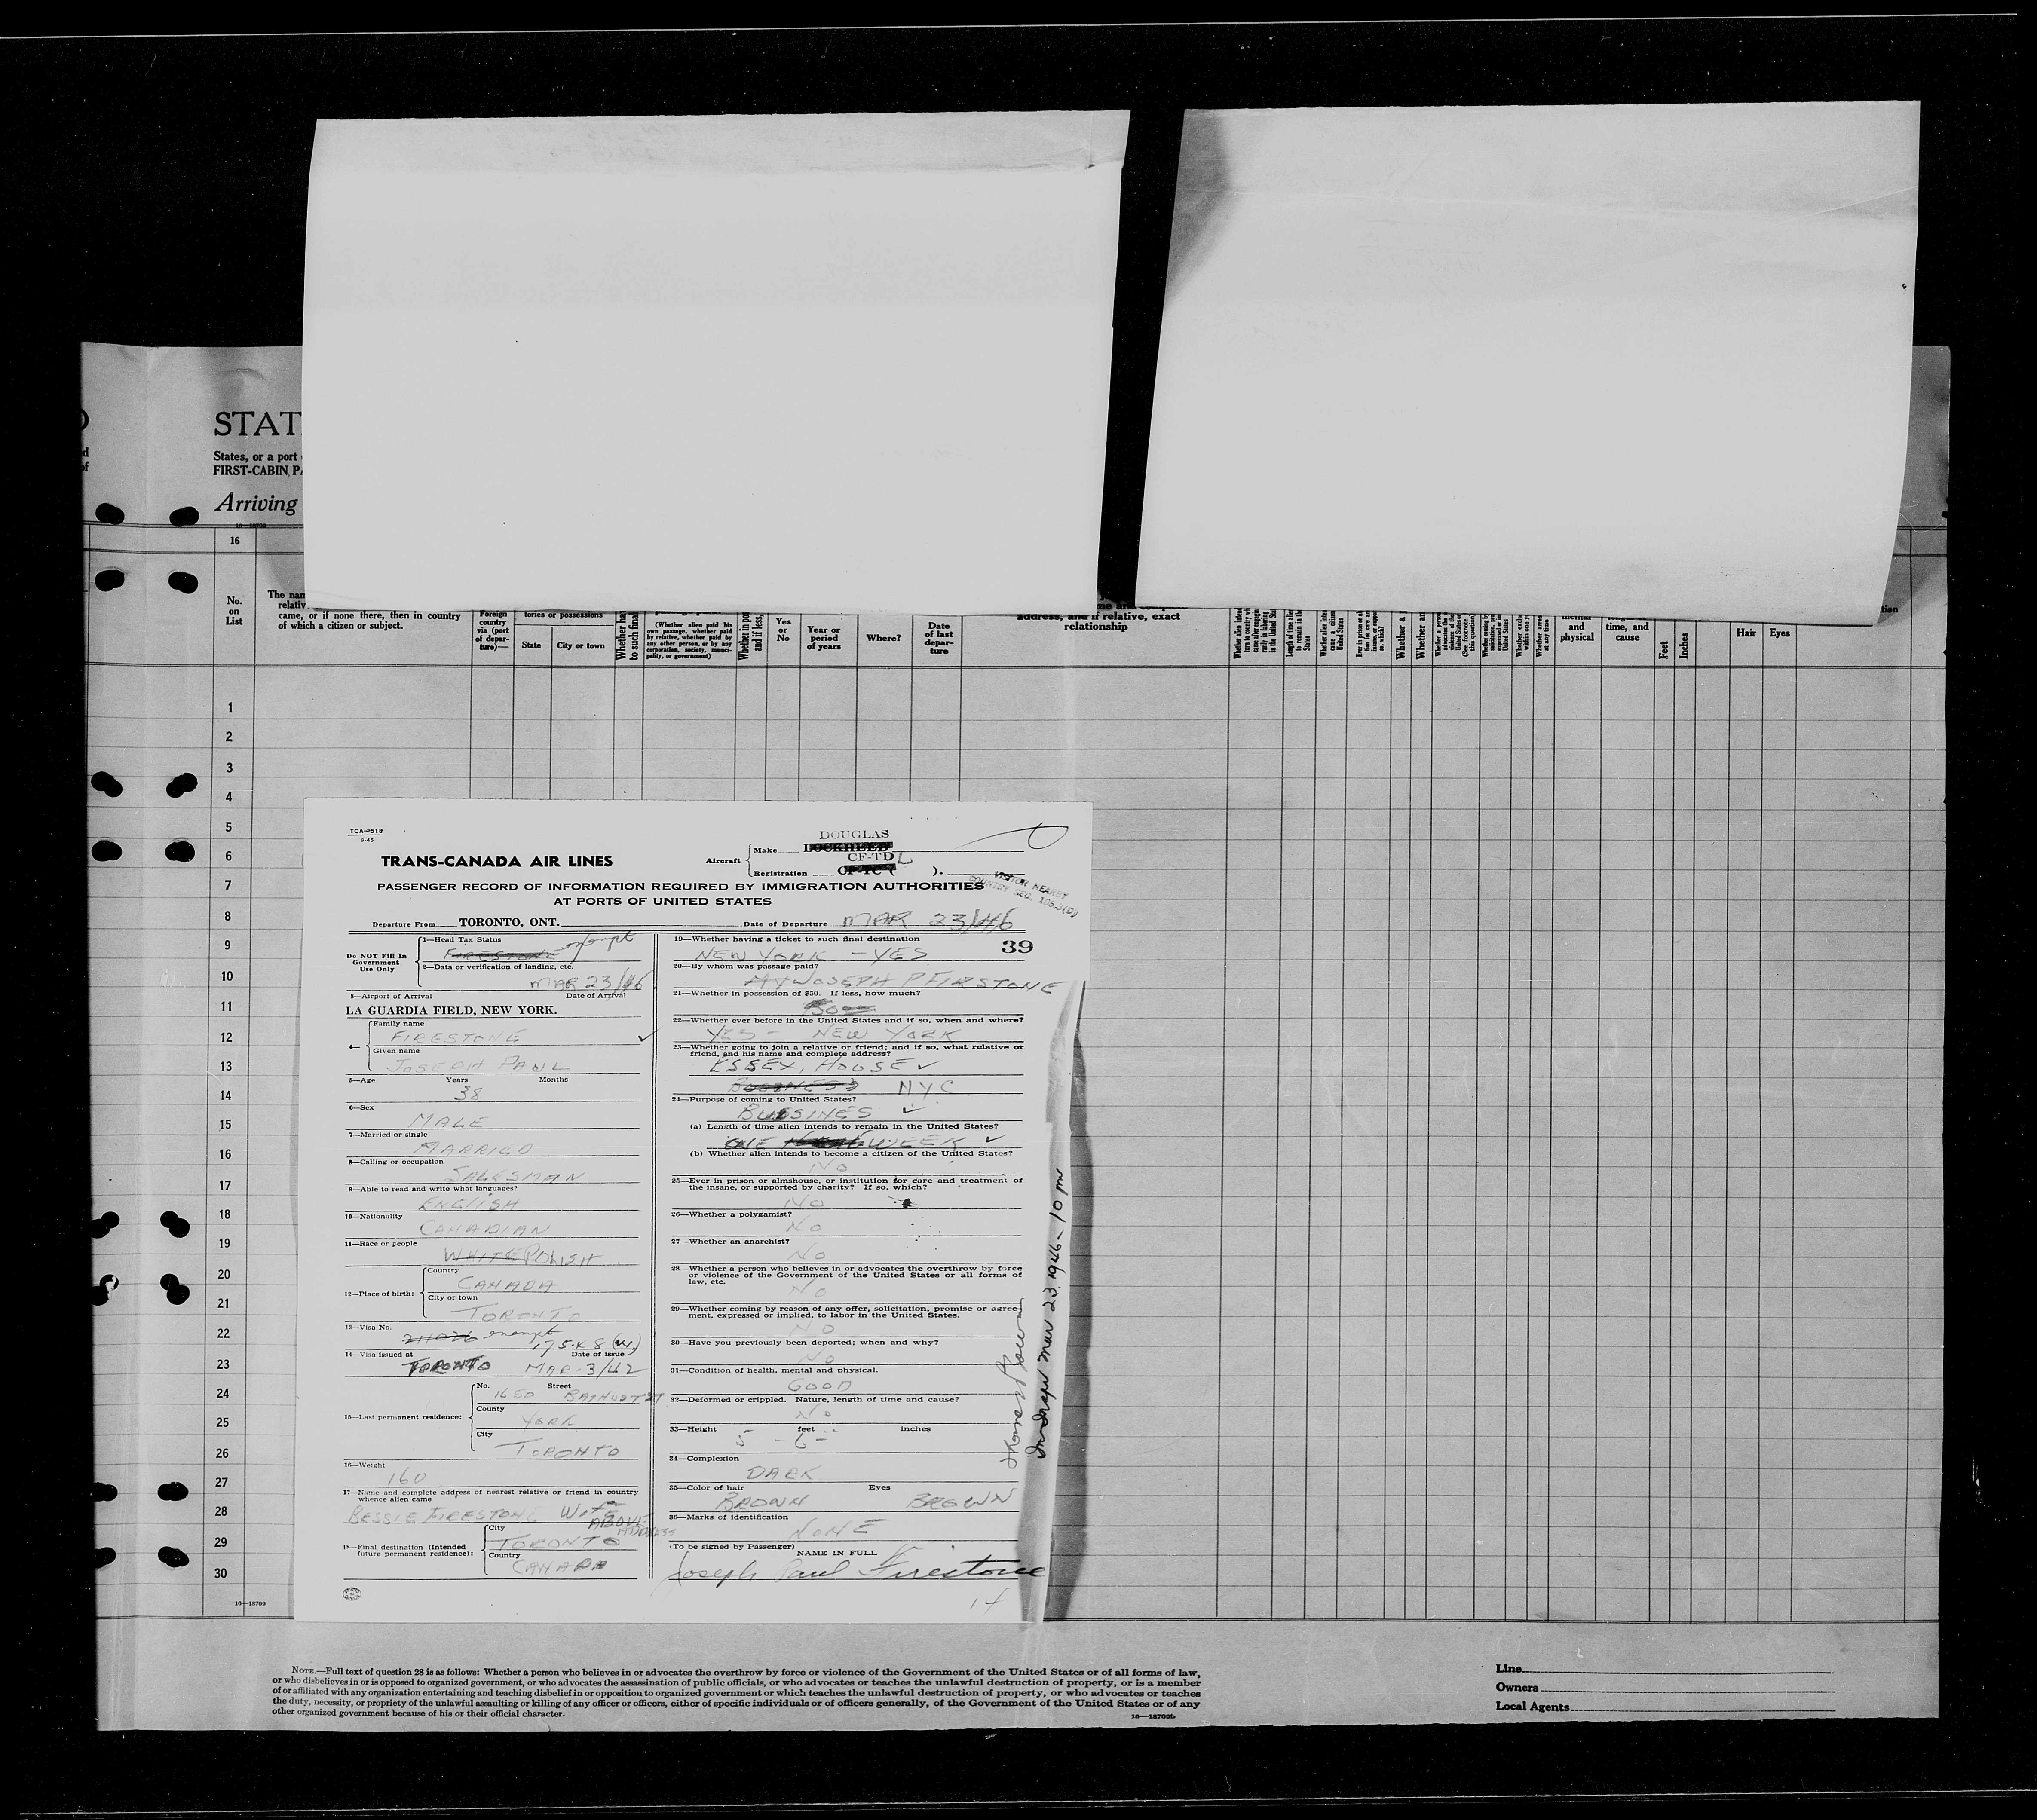 STAT
States, or a port
FIRST-CABIN PA
Arriving
16—18709
16
No.
on
List
The nam
relativ
came, or if none there, then in country
of which a citizen or subject.
Foreign
country
via (port
of depar-
ture)—
tories or possessions
State
City or town
Whether ha
to such final
(Whether alien paid his
own passage, whether paid
by relative, whether paid by
any other person, or by any
corporation, society, munici-
pality, or government)
Whether in po
and if less,
Yes
or
No
Year or
period
of years
Where?
Date
of last
depar-
ture
address, and if relative, exact
relationship
Whether a
Whether an
and
physical
time, and
cause
Feet
Inches
Hair
Eyes
1
2
3
4
5
6
7
8
9
10
11
12
13
14
15
16
17
18
19
20
21
22
23
24
25
26
27
28
29
30
16—18709
TCA—518
9-45
TRANS-CANADA AIR LINES
Aircraft
DOUGLAS
Make LOCKHEED
CF-TDL
Registration CF-TC ( ).
PASSENGER RECORD OF INFORMATION REQUIRED BY IMMIGRATION AUTHORITIES
AT PORTS OF UNITED STATES
VISITOR NEARBY
COUNTRY SEC.
Departure From TORONTO, ONT.
Date of Departure MAR 23/46
39
Do NOT Fill In
Government
Use Only
1—Head Tax Status
FIRESTONE exempt
2—Data or verification of landing, etc.
MAR 23/46
3—Airport of Arrival Date of Arrival
LA GUARDIA FIELD, NEW YORK.
4—
Family name
FIRESTONE
Given name
JOSEPH PAUL
5—Age Years Months
38
6—Sex
MALE
7—Married or single
MARRIED
8—Calling or occupation
SALESMAN
9—Able to read and write what languages?
ENGLISH
10—Nationality
CANADIAN
11—Race or people
WHITE POLISH
12—Place of birth:
Country
CANADA
City or town
TORONTO
13—Visa No.
exempt
14—Visa issued at Date of issue
TORONTO MAR-3/42
15—Last permanent residence:
No. Street
1650 BATHUST ST
County
YORK
City
TORONTO
16—Weight
160
17—Name and complete address of nearest relative or friend in country
whence alien came
BESSIE FIRESTONE WIFE
ABOVE
ADDRESS
18—Final destination (Intended
future permanent residence):
City
TORONTO
Country
CANADA
19—Whether having a ticket to such final destination
NEW YORK - YES
20—By whom was passage paid?
JOSEPH P FIRSTONE
21—Whether in possession of $50. If less, how much?
22—Whether ever before in the United States and if so, when and where?
YES - NEW YORK
23—Whether going to join a relative or friend; and if so, what relative or
friend, and his name and complete address?
ESSEX, HOUSE
NYC
24—Purpose of coming to United States?
BUSSINES
(a) Length of time alien intends to remain in the United States?
ONE WEEK
(b) Whether alien intends to become a citizen of the United States?
NO
25—Ever in prison or almshouse, or institution for care and treatment of
the insane, or supported by charity? If so, which?
NO
26—Whether a polygamist?
NO
27—Whether an anarchist?
NO
28—Whether a person who believes in or advocates the overthrow by force
or violence of the Government of the United States or all forms of
law, etc.
NO
29—Whether coming by reason of any offer, solicitation, promise or agree-
ment, expressed or implied, to labor in the United States.
NO
30—Have you previously been deported; when and why?
NO
31—Condition of health, mental and physical.
GOOD
32—Deformed or crippled. Nature, length of time and cause?
NO
33—Height feet inches
5 - 6 -
34—Complexion
DARK
35—Color of hair Eyes
BROWN BROWN
36—Marks of identification
NONE
(To be signed by Passenger)
NAME IN FULL
Joseph Paul Firestone
14
Mar 23, 1946 - 10 pm
NOTE.—Full text of question 28 is as follows: Whether a person who believes in or advocates the overthrow by force or violence of the Government of the United States or of all forms of law,
or who disbelieves in or is opposed to organized government, or who advocates the assassination of public officials, or who advocates or teaches the unlawful destruction of property, or is a member
of or affiliated with any organization entertaining and teaching disbelief in or opposition to organized government or which teaches the unlawful destruction of property, or who advocates or teaches
the duty, necessity, or propriety of the unlawful assaulting or killing of any officer or officers, either of specific individuals or of officers generally, of the Government of the United States or of any
other organized government because of his or their official character.
16—18709b
Line
Owners
Local Agents